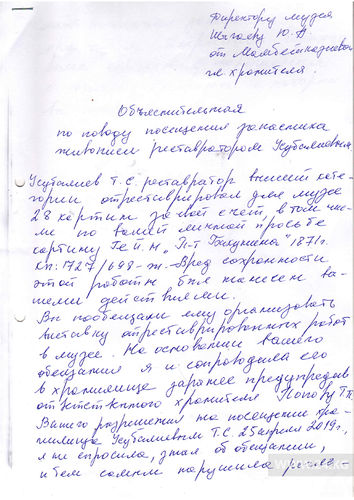 Директору музея
Шыгаеву Ю.А
от Мамбетказиевой
гл. хранителя.
Объяснительная
по поводу посещения запасника
живописи реставратором Усубалиевым.
Усубалиев Т.С. реставратор высшей кате-
гории отреставрировал для музея
28 картин за свой счет, в том чис-
ле по вашей личной просьбе
картину Ге Н.Н "П-т Бакунина" 1871г.
кп: 1727/698-ж. Вред сохранности
этой работы был нанесен ва-
шими действиями.
Вы пообещали ему организовать
выставку отреставрированных работ
в музее. На основании вашего
обещания я и сопроводила его
в хранилище заранее предупредив
ответственного хранителя Попову Т.П.
Вашего разрешения на посещение хра-
нилища Усубалиевым Т.С. 25 апреля 2019г,
я не спросила, зная об обещании,
и тем самым нарушила